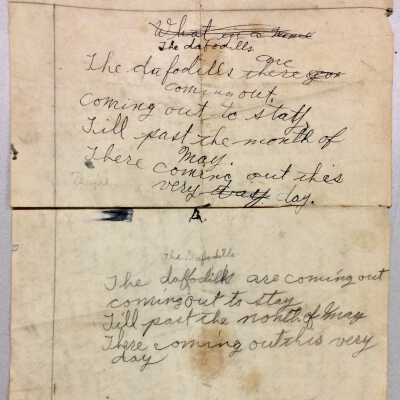 What in a name
The dafodills
The dafodills there are
coming out.
coming out to stay,
Till past the month of
May.
There coming out this
very day.
A.
The Dafodills
The daffodills are coming out
coming out to stay
Till past the month of May
There coming out this very
day